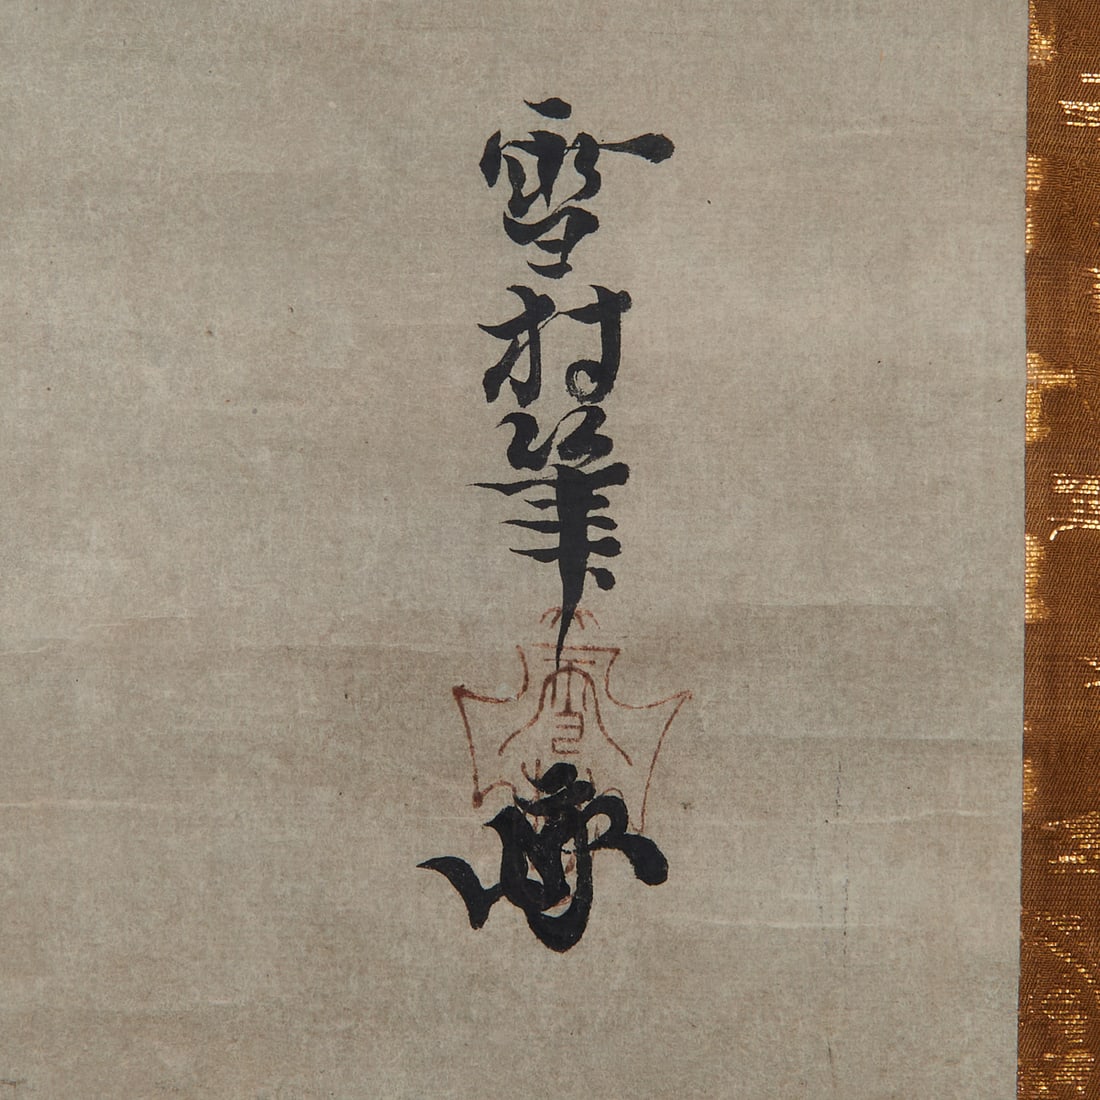 雪村筆